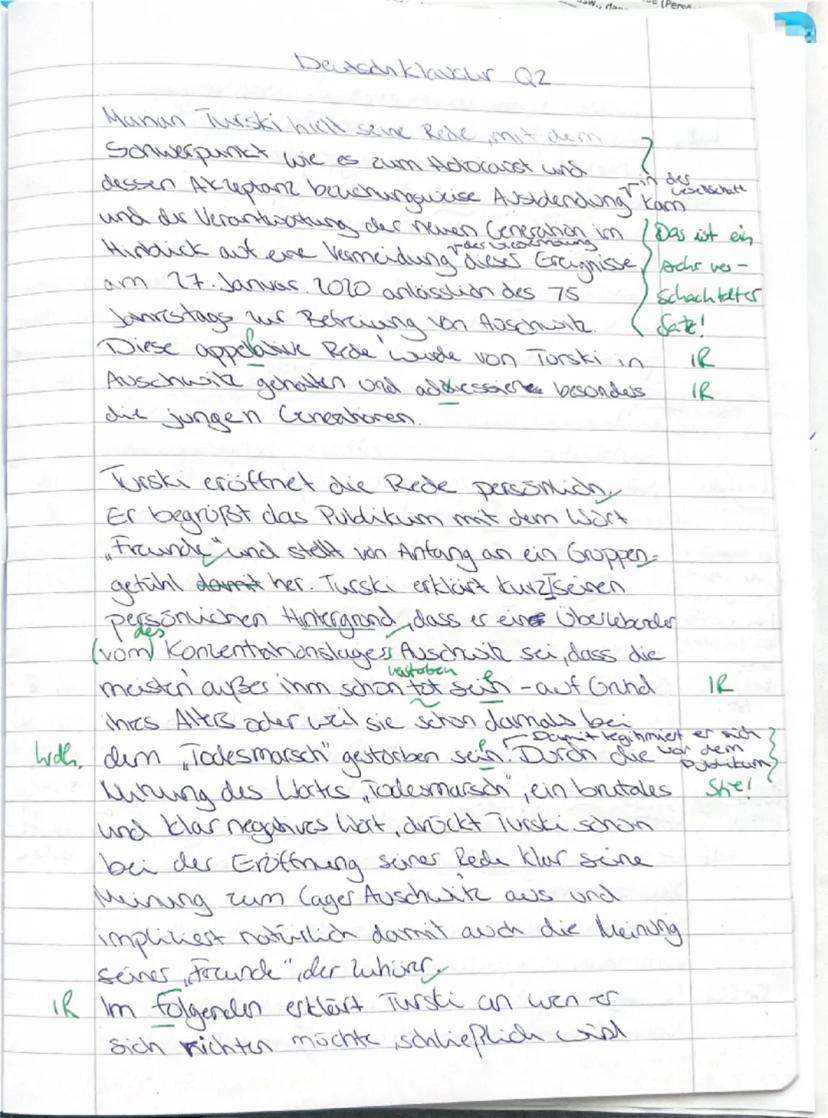 Deutschklausur Q2
Marian Turski hielt seine Rede, mit dem
Schwerpunkt wie es zum Holocaust und
dessen Akzeptanz beziehungsweise Ausdehnung in der Gesellschaft kam
und die Verantwortung der neuen Generation im
Hinblick auf eine Vermeidung der Wiederholung dieses Ereignisse
am 27. Januar 2020 anlässlich des 75
Jahrestags zur Befreiung von Auschwitz.
Das ist ein
sehr ver-
schachtelter
Satz!
Diese appelative Rede wurde von Turski in IR
Auschwitz gehalten und addressiert besonders IR
die jungen Generationen.
Turski eröffnet die Rede persönlich.
Er begrüßt das Publikum mit dem Wort
„Freunde" und stellt von Anfang an ein Gruppen-
gefühl damit her. Turski erklärt kurz seinen
persönlichen Hintergrund, dass er ein Überlebender
des
(vom) Konzentrationslagers Auschwitz sei, dass die
verstorben
meisten außer ihm schon tot sein - auf Grund IR
ihres Alters oder weil sie schon damals bei
Wdh. dem „Todesmarsch" gestorben sein. Durch die
Damit legitimiert er sich
vor dem
Publikum
Nutzung des Wortes „Todesmarsch", ein brutales
und klar negatives Wort, drückt Turski schon
bei der Eröffnung seiner Rede klar seine
Meinung zum Lager Auschwitz aus und
impliziert natürlich damit auch die Meinung
seiner „Freunde", der Zuhörer
IR Im folgenden erklärt Turski an wen er
sich richten möchte, schließlich wird